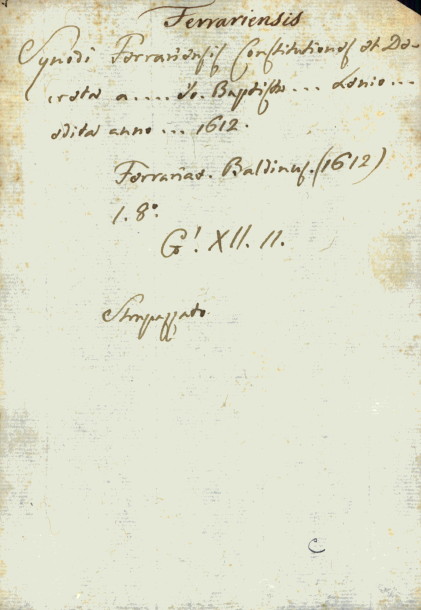 Ferrariensis
Synodi Ferrariensis Constitutiones et De-
creta a.... Jo. Baptista... Lenio...
edita anno... 1612.
Ferrariae. Baldinus. (1612)
1. 8º.
G! XII. 11.
Strapazzato
C